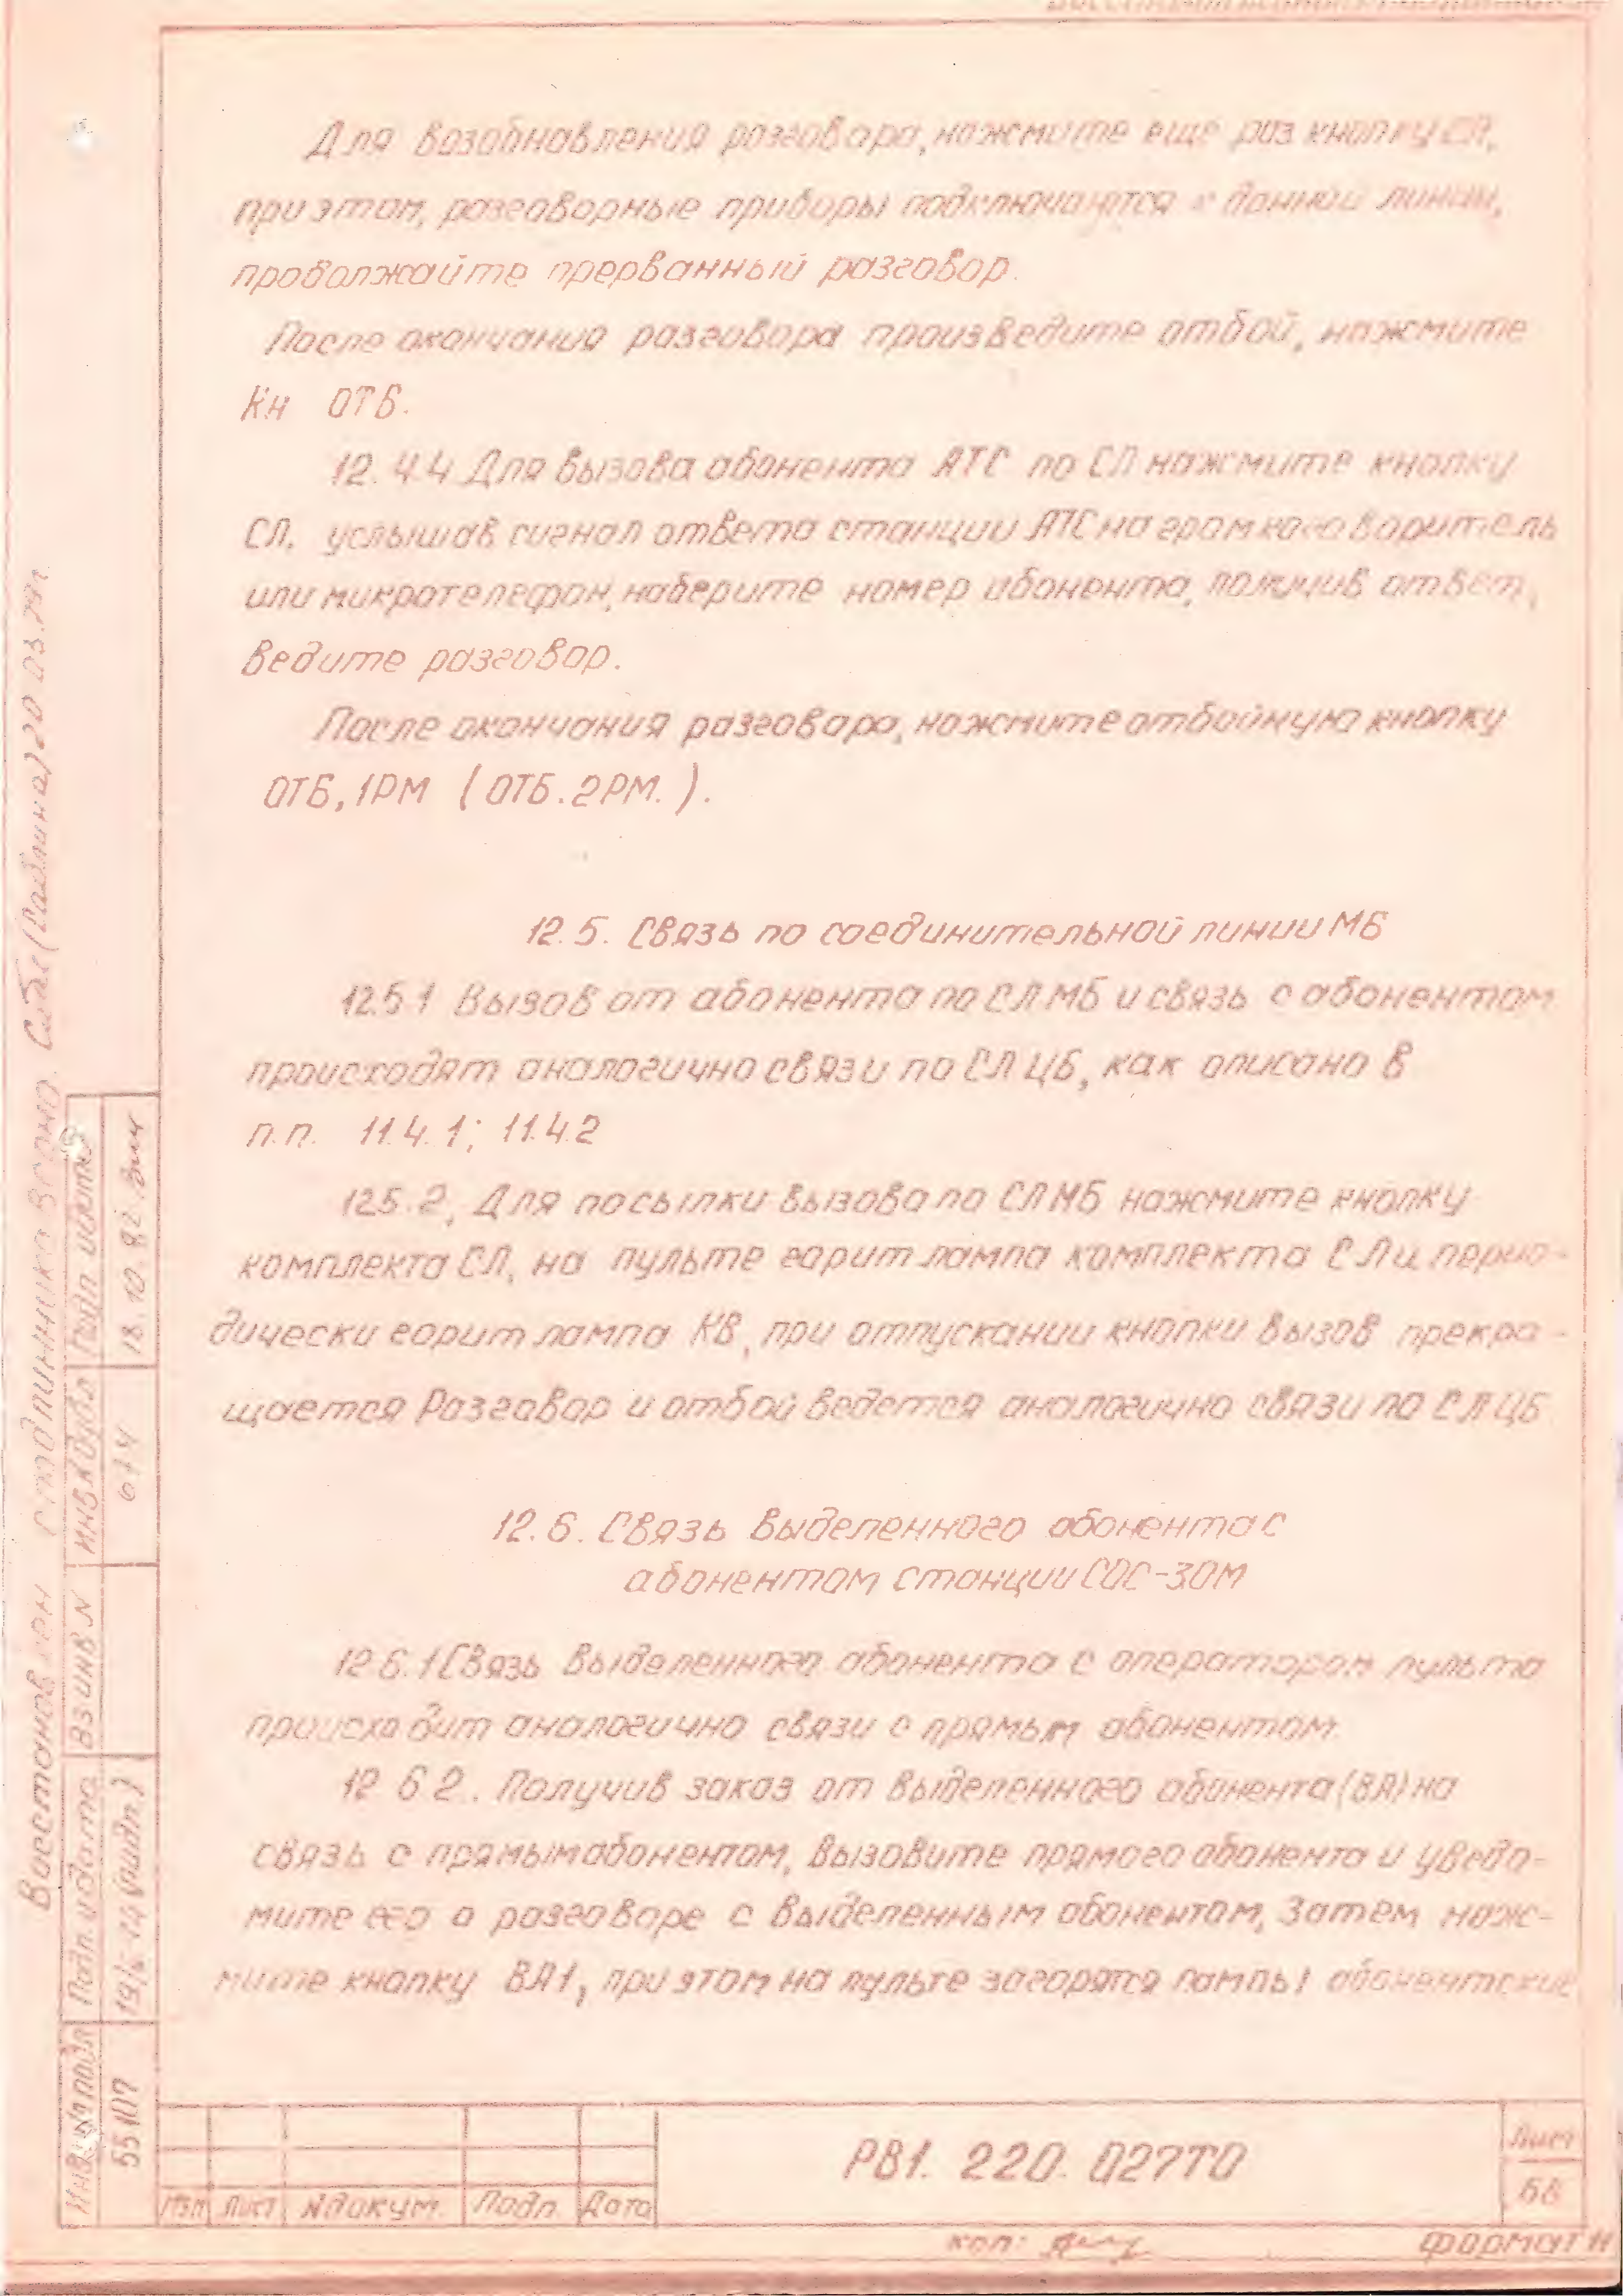 Для возобновления разговора, нажмите еще раз кнопку СЛ,
при этом, разговорные приборы подключаются к данной линии,
продолжайте прерванный разговор.
После окончания разговора произведите отбой, нажмите
Кн ОТБ.
12.4.4 Для вызова абонента АТС по СЛ нажмите кнопку
СЛ, услышав сигнал ответа станции АТС на громкоговоритель
или микротелефон, наберите номер абонента, получив ответ,
ведите разговор.
После окончания разговора, нажмите отбойную кнопку
ОТБ, 1РМ (ОТБ. 2РМ.).
12.5. Связь по соединительной линии МБ
12.5.1 Вызов от абонента по СЛ МБ и связь с абонентом
происходят аналогично связи по СЛ ЦБ, как описано в
п.п. 11.4.1; 11.4.2
12.5.2, Для посылки вызова по СЛ МБ нажмите кнопку
комплекта СЛ, на пульте горит лампа комплекта СЛ и перио-
дически горит лампа КВ, при отпускании кнопки вызов прекра-
щается Разговор и отбой ведется аналогично связи по СЛ ЦБ
12.6. Связь выделенного абонента с
абонентом станции СОС-30М
12.6.1 Связь выделенного абонента с оператором пульта
происходит аналогично связи с прямым абонентом.
12.6.2. Получив заказ от выделенного абонента (ВА) на
связь с прямым абонентом, вызовите прямого абонента и уведо-
мите его о разговоре с выделенным абонентом, Затем наж-
мите кнопку ВА1, при этом на пульте загорятся лампы абонентские
Изм Лист № докум. Подп. Дата
РВ1. 220. 027ТО
Лист
68
коп:
Формат
Инв № подл
55107
Подп. и дата
Вз инв N
Инв N дубл
674
Подп и дата
18.10.82.
Восстановлен с подлинника верно. 20 03.79г